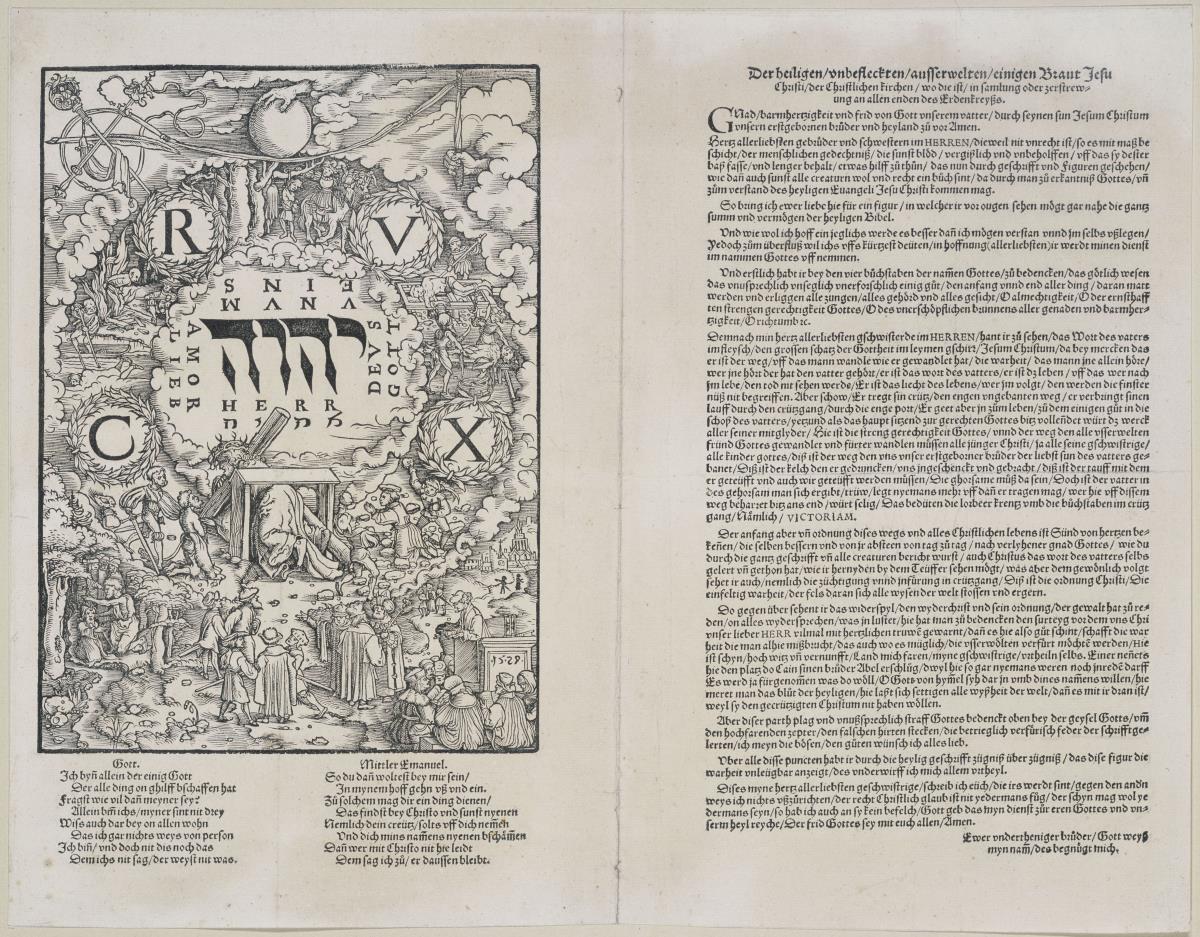 R V
EINS
VNVM
AMOR
LIEB
יהוה
DEVS
GOTT
HERR
C X
1529
Gott.
Ich byñ allein der einig Gott
Der alle ding on ghilff bschaffen hat
Fragst wie vil dañ meyner sey?
Allein bin ichs/myner sint nit drey
Wiss auch dar bey on allen wohn
Das ich gar nichts weys von person
Ich biñ/vnd doch nit dis noch das
Dem ichs nit sag/der weyst nit was.
Mittler Emanuel.
So du dañ woltest bey mir sein/
In mynem hoff gehn vß vnd ein.
Zů solchem mag dir ein ding dienen/
Das findst bey Christo vnd sunst nyenen
Nemlich dein creütz/solts vff dich nemen
Vnd dich mins namens nyenen bschämen
Dañ wer mit Christo nit hie leidt
Dem sag ich zů/er daussen bleibt.
Der heiligen/vnbefleckten/ausserwelten/einigen Braut Jesu
Christi/der Christlichen kirchen/wo die ist/in samlung oder zerstrew-
ung an allen enden des Erdenkreyßs.
GNad/barmhertzigkeit vnd frid von Gott vnserem vatter/durch seynen sun Jesum Christum
vnsern erstgebornen brůder vnd heyland zů vor Amen.
Hertz allerliebsten gebrůder vnd schwestern im HERREN/die weil nit vnrecht ist/so es mit maß be
schicht/der menschlichen gedechtniß/die sunst blöd/vergißlich vnd vnbeholffen/vff das sy dester
baß fasse/vnd lenger behalt/etwas hilff zů thůn/das nun durch geschrifft vnd Figuren geschehen/
wie dañ auch sunst alle creaturn wol vnd recht ein bůch sint/da durch man zů erkantniß Gottes/vñ
zům verstand des heyligen Euangeli Jesu Christi kommen mag.
So bring ich ewer liebe hie für ein figur/in welcher ir vor ougen sehen mögt gar nahe die gantz
summ vnd vermögen der heyligen Bibel.
Vnd wie wol ich hoff ein jeglichs werde es besser dañ ich mögen verstan vnnd jm selbs vßlegen/
Yedoch zům überfluß wil ichs vffs kürtzest deüten/in hoffnung(allerliebsten)ir werdt minen dienst
im nammen Gottes vff nemmen.
Vnd erstlich habt ir bey den vier bůchstaben der nam̃en Gottes/zů bedencken/das götlich wesen
das vnussprechlich vnseglich vnerforschlich einig gůt/den anfang vnnd end aller ding/daran matt
werden vnd erliggen alle zungen/alles gehörd vnd alles gesicht/O almechtigkeit/O der ernsthaff
ten strengen gerechtigkeit Gottes/O des vnerschöpflichen brunnens aller genaden vnd barmher-
tzigkeit/O richtumb ꝛc.
Demnach min hertz allerliebsten gschwisterde im HERREN/hant ir zů sehen/das Wort des vaters
im fleysch/den grossen schatz der Gottheit im leymen gschirꝛ/Jesum Christum/da bey mercken das
er ist der weg/vff das man wandle wie er gewandlet hat/die warheit/das mann jne allein höre/
wer jne hört der hat den vatter gehört/er ist das wort des vatters/er ist dz leben/vff das wer nach
jm lebe/den tod nit sehen werde/Er ist das liecht des lebens/wer jm volgt/den werden die finster
nüß nit begreiffen. Aber schow/Er tregt sin crütz/den engen vngebanten weg/er verbringt sinen
lauff durch den crützgang/durch die enge port/Er geet aber jn zům leben/zů dem einigen gůt in die
schoß des vatters/yetzund als das haupt sitzend zur gerechten Gottes bitz vollendet würt dz werck
aller seiner mitglyder/Hie ist die streng gerechtigkeit Gottes/vnnd der weg den alle vsserwelten
fründ Gottes gewandlet vnd fürter wandlen müssen alle junger Christi/ja alle seine gschwistrige/
alle kinder gottes/diß ist der weg den vns vnser erstgeborner brůder der liebst sun des vatters ge-
banet/Diß ist der kelch den er gedruncken/vns jngeschenckt vnd gebracht/diß ist der tauff mit dem
er geteüfft vnd auch wir geteüfft werden müssen/Die ghorsame můß da sein/Doch ist der vatter in
des gehorsam man sich ergibt/trüw/legt nyemans mehr vff dañ er tragen mag/wer hie vff dissem
weg beharꝛet bitz ans end/würt selig/Das bedüten die lorbeer krentz vmb die bůchstaben im crütz
gang/Nämlich/VICTORIAM.
Der anfang aber vñ ordnung dises wegs vnd alles Christlichen lebens ist Sünd von hertzen be-
keñen/die selben bessern vnd von jr absteen von tag zů tag/nach verlyhener gnad Gottes/wie du
durch die gantz geschrifft vñ alle creaturen bericht wurst/auch Christus das wort des vatters selbs
gelert vñ gethon hat/wie ir hernyden by dem Teüffer sehen mögt/was aber dem gewönlich volgt
sehet ir auch/nemlich die züchtigung vnnd infürung in crützgang/Diß ist die ordnung Christi/Die
einfeltig warheit/der fels daran sich alle wysen der welt stossen vnd ergern.
Do gegen über sehent ir das widerspyl/den wyderchrist vnd sein ordnung/der gewalt hat zů re-
den/on alles wydersprechen/was jn lustet/hie hat man zů bedencken den surteyg vor dem vns Chri
vnser lieber HERR vilmal mit hertzlichen truwē gewarnt/dañ es hie also gůt schint/schafft die war
heit die man alhie mißbrucht/das auch wo es müglich/die vsserwölten verfürt möchtē werden/Hie
ist schyn/hoch witz vñ vernunfft/Land mich faren/myne gschwistrige/vrtheiln selbs. Einer neñers
hie den platz do Cain sinen brůder Abel erschlůg/dwyl hie so gar nyemans weren noch jnredē darff
Es werd ja fürgenom̃en was do wöll/O Gott von hym̃el syh dar jn vmb dines namens willen/hie
meret man das blůt der heyligen/hie laßt sich settigen alle wyßheit der welt/dañ es mit ir dran ist/
weyl sy den gecrützigten Christum nit haben wöllen.
Aber diser parth plag vnd vnußsprechlich straff Gottes bedenckt oben bey der geysel Gotts/vm̃
den hochfarenden zepter/den falschen hirten stecken/die betrieglich verfürisch feder der schrifftge-
lerten/ich meyn die bösen/den gůten wünsch ich alles lieb.
Vber alle disse puncten habt ir durch die heylig geschrifft zügniß über zügniß/das dise figur die
warheit vnleügbar anzeigt/des vnderwirff ich mich allem vrtheyl.
Dises myne hertz allerliebsten geschwistrige/schreib ich eüch/die irs werdt sint/gegen den andn
weys ich nichts vßzůrichten/der recht Christlich glaub ist nit yedermans fůg/der schyn mag wol ye
dermans seyn/so hab ich auch an sy kein befelch/Gott geb das myn dienst zůr eren Gottes vnd vn-
serm heyl reyche/Der frid Gottes sey mit euch allen/Amen.
Ewer vndertheniger brůder/Gott weyß
myn nam̃/des begnügt mich.